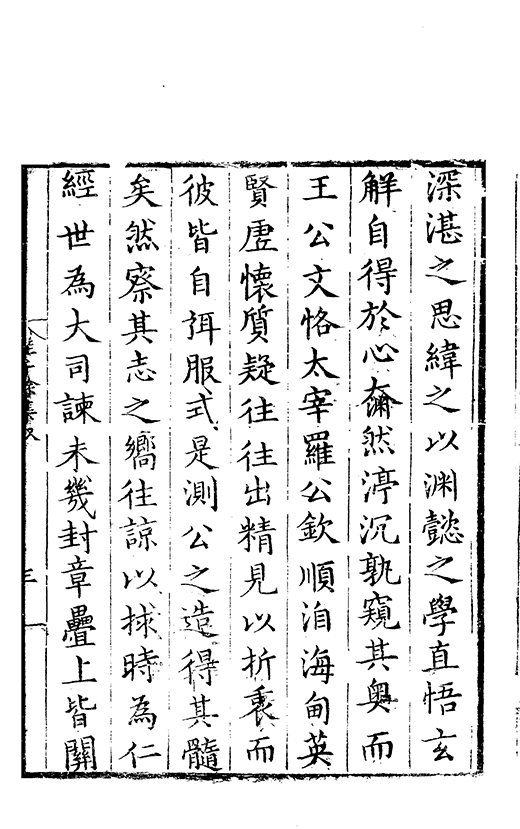 深湛之思緯之以渊懿之學直悟玄
解自得於心奫然渟沉孰窺其奥而
王公文恪太宰羅公欽順洎海甸英
賢虚懷質疑徃徃出精見以折衷而
彼皆自弭服式是測公之造得其髓
矣然察其志之嚮徃諒以捄時為仁
經世為大司諫未幾封章疊上皆關
三